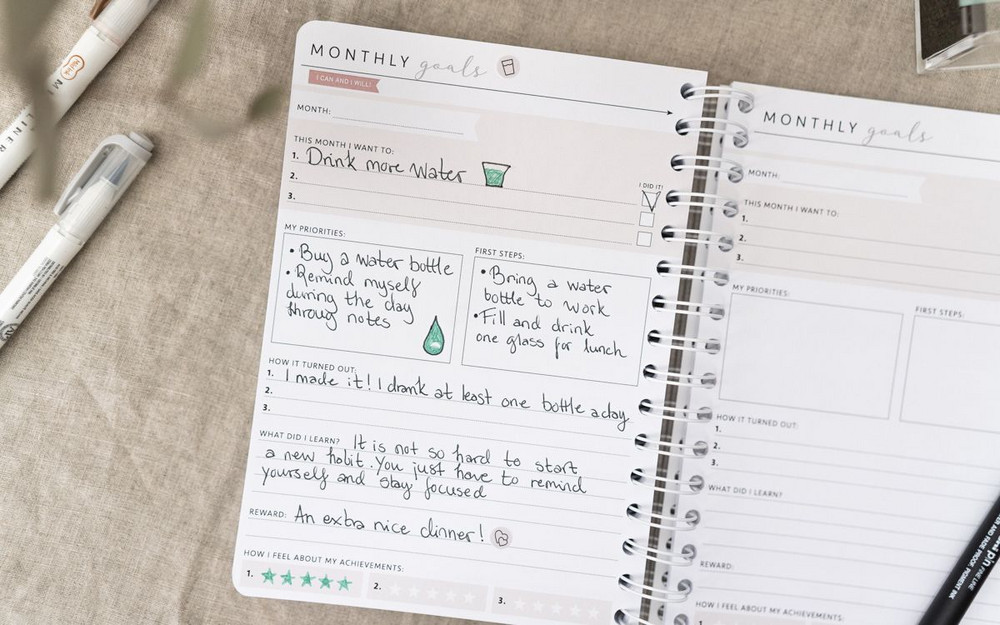 MONTHLY goals
I CAN AND I WILL!
MONTH:
THIS MONTH I WANT TO:
1. Drink more water
2.
3.
I DID IT!
MY PRIORITIES:
• Buy a water bottle
• Remind myself
during the day
throug notes
FIRST STEPS:
• Bring a water
bottle to work
• Fill and drink
one glass for lunch
HOW IT TURNED OUT:
1. I made it! I drank at least one bottle a day
2.
3.
WHAT DID I LEARN? It is not so hard to start
a new habit. You just have to remind
yourself and stay focused
REWARD: An extra nice dinner!
HOW I FEEL ABOUT MY ACHIEVEMENTS:
1.
2.
3.
MONTHLY goals
MONTH:
THIS MONTH I WANT TO:
1.
2.
3.
MY PRIORITIES:
FIRST STEPS:
HOW IT TURNED OUT:
1.
2.
3.
WHAT DID I LEARN?
REWARD:
HOW I FEEL ABOUT MY ACHIEVEMENTS:
LINER
FINE LINE
AND FADE PROOF, PIGMENT INK